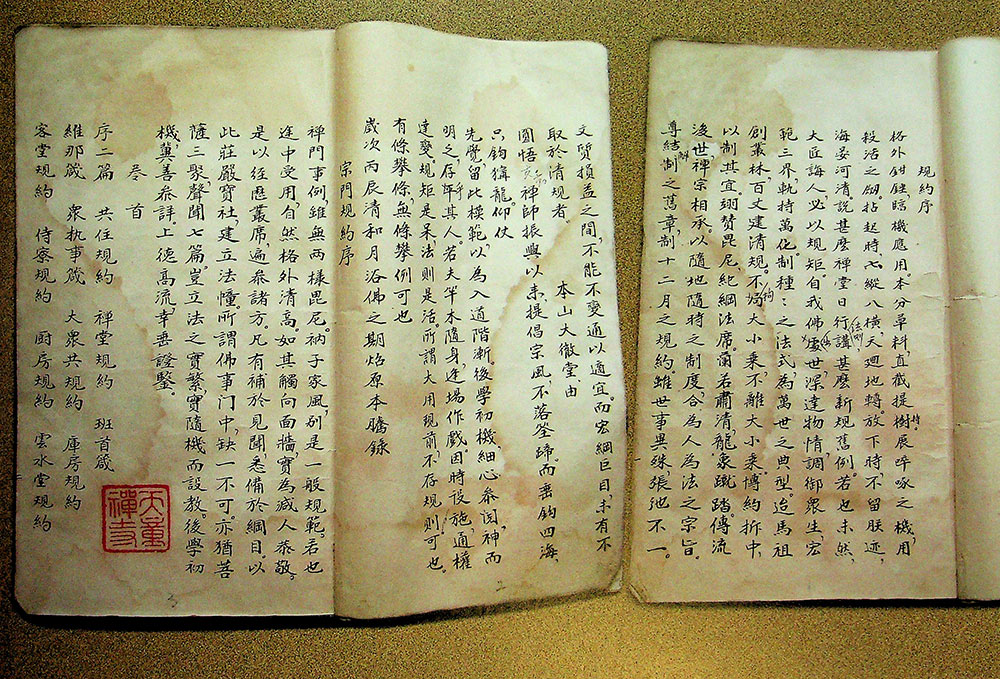 規約序
格外鉗錘瞎機應用本分草料直截提樹展啐啄之機,用
殺活之劒。拈起時,七縱八橫天廻地轉。放下時不留朕迹,
海晏河清。説甚麽禪堂日行,講甚麽新規舊例。若也未然,
大匠誨人必以規矩。自我佛處世,深達物情,調御衆生,宏
範三界,軌持萬化,制種:之法式為萬世之典型。迨馬祖
創叢林百丈建清規。不局大小乘,不離大小乘。博約折中,
以制其宜,翊賛毘尼,紀綱法席,爾若肅清,龍象蹴踏,傳流
後世,禪宗相承,以隨地隨時之制度,合為人為法之宗旨。
尊結制之舊章,制十二月之規約。雖世事異殊,張弛不一。
文質損益之間,不能不變通以適宜。而宏綱巨目,未有不
取於清規者 本山大徹堂,由
圓悟禪師振興以來,提倡宗風,不落筌蹄而垂鈎四海,
只釣獰龍。仰仗
先覺留此模範,以為入道階漸。後學初機細心参閲,神而
明之,存乎其人。若夫竿木隨身,逢場作戲。因時設施,通權
達變。規矩是呆法則是活。所謂大用現前,不存規則可也。
有條攀條,無條攀例可也
歲次丙辰清和月浴佛之期炤原本謄錄
宗門規約序
禪門事例,雖無兩樣毘尼。衲子家風,別是一般規範。若也
途中受用,自然格外清高。如其觸向面牆,實為減人恭敬。
是以徃歷叢席,遍参諸方。凡有補於見聞,悉備於綱目。以
此莊嚴寳社,建立法幢。所謂佛事门中,缺一不可。亦猶菩
薩三聚聲聞七篇。豈立法之實繫,實隨機而設教。後學初
機,冀善参詳。上德高流,幸垂證鑒。
卷首
序二篇 共住規約 禪堂規約 班首箴
維那箴 衆执事箴 大衆共規約 庫房規約
客堂規約 侍寮規約 厨房規約 雲水堂規約
天童禪寺
2
3